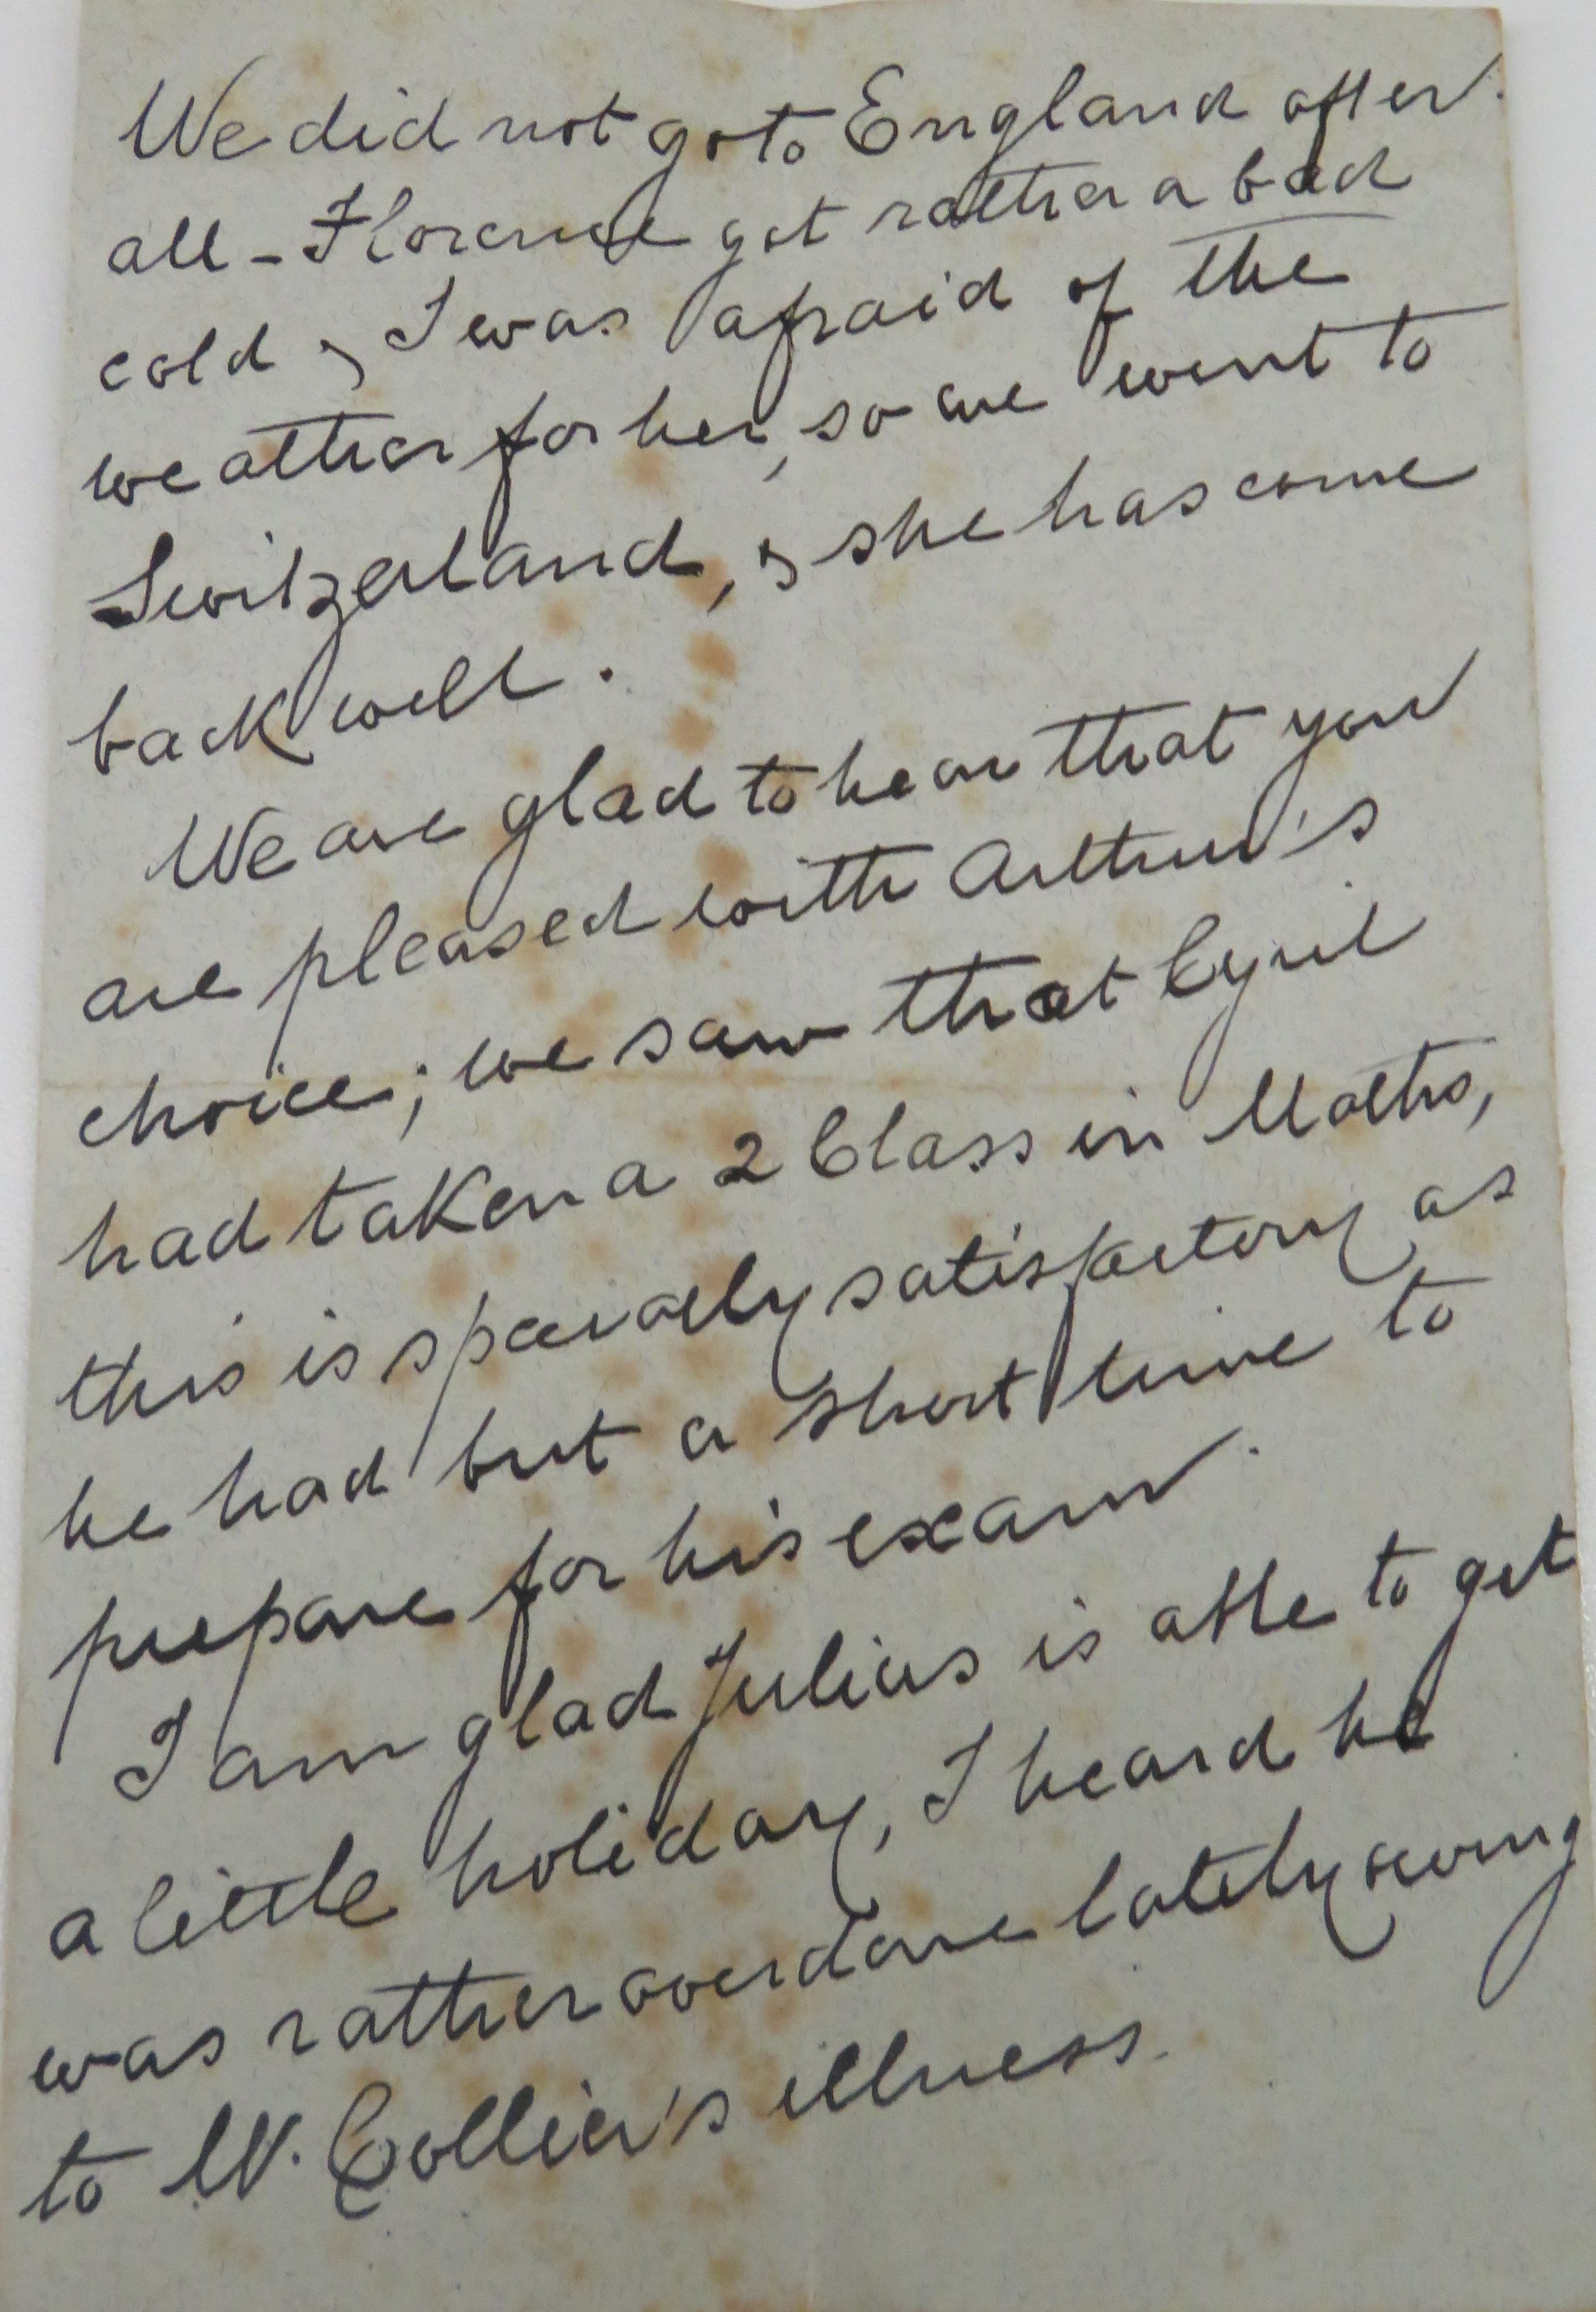 We did not go to England after
all - Florence got rather a bad
cold & I was afraid of the
weather for her, so we went to
Switzerland, & she has come
back well.
We are glad to hear that you
are pleased with Arthur's
choice; we saw that Cyril
had taken a 2 Class in Maths,
this is specially satisfactory as
he had but a short time to
prepare for his exam.
I am glad Julius is able to get
a little holiday, I heard he
was rather overdone lately owing
to W. Collier's illness.